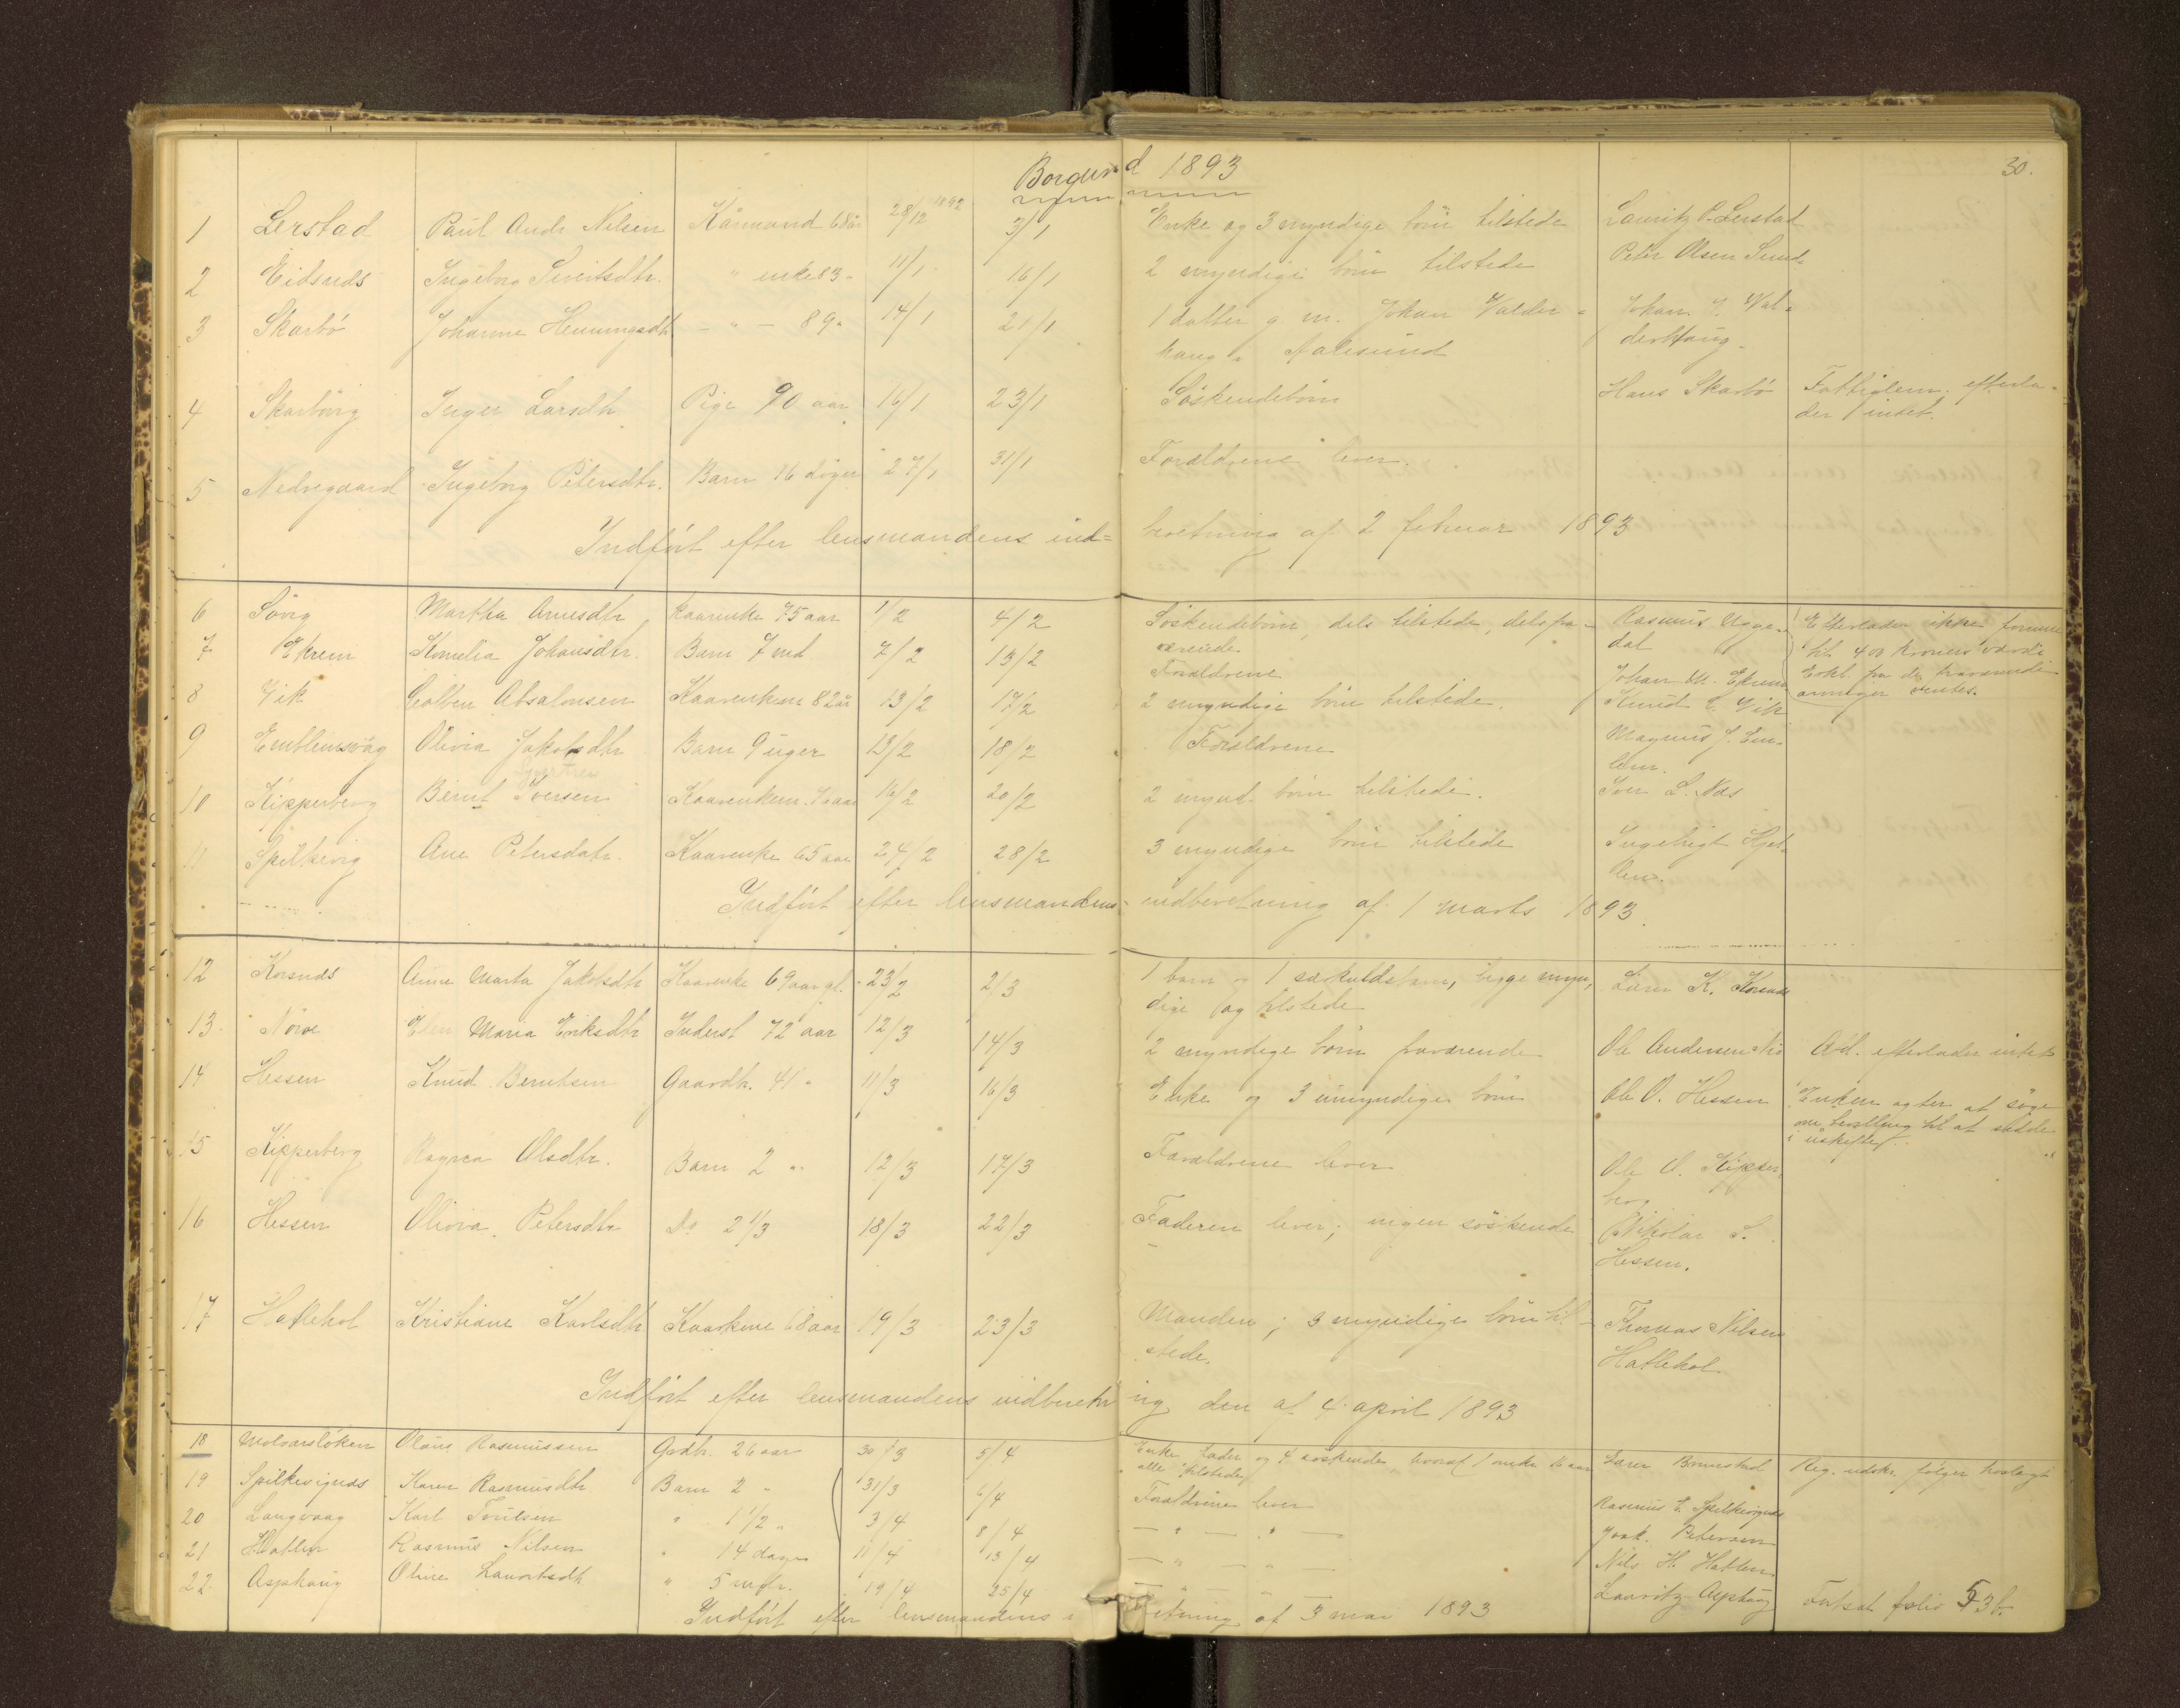 Borgund 1893
30.
1 Lerstad Paul Andr Nilsen Kårmand 68 år 28/12 1892 3/1 Enke og 3 myndige börn tilstede Lauritz P. Lerstad
2 Eidsnæs Ingeborg Siveitsdtr. " enke 83 " 11/1 16/1 2 myndige börn tilstede Peter Olsen Sund
3 Skarbö Johanne Henningsdtr. - " - 89 " 14/1 21/1 1 datter g m. Johan Valder- Johan J. Val-
haug i Aalesund derhaug
4 Skarbövig Inger Larsdtr. Pige 90 aar 16/1 23/1 Söskendebörn Hans Skarbö Fattiglem, efterla-
der intet.
5 Nedregaard Ingeborg Petersdtr. Barn 16 döger 27/1 31/1 Forældrene lever.
Indfört efter lensmandens ind-beretning af 2 februar 1893
6 Sövig Martha Arnesdtr kaarenke 75 aar 1/2 4/2 Söskendebörn, dels tilstede, dels fra- Rasmus Ugge- Efterlader ikke formue
værende dal til 400 kroners værdi
7 Ekrem Kornelia Johansdtr. Barn 7 md 7/2 13/2 Forældrene Johan M. Ekrem Erkl. fra de fraværende
arvinger ventes.
8 Vik Colben Absalonsen Kaarenkem 82 år 13/2 17/2 2 myndige börn tilstede. Knud C. Vik
9 Emblemsvåg Olivia Jakobsdtr Barn 9 uger 13/2 18/2 Forældrene Magnus J. Em-
blem.
10 Kipperberg Bernt Iversen Kaarenkem. 70 aar 16/2 20/2 2 mynd. börn tilstede. Iver L. Næs
11 Spilkevig Ane Petersdatr. Kaarenke 65 aar 24/2 28/2 3 myndige börn tilstede Ingebrigt Hjel-
len.
Indfört efter lensmandens indberetning af 1 marts 1893.
12 Korsnæs Anne Marta Jakobsdtr Kaarenke 69 aar gl. 23/2 2/3 1 barn og 1 særkuldsbarn, begge myn- K. Korsnæs
dige og tilstede
13 Nörve Elen Maria Eriksdtr Inderst 72 aar 12/3 14/3 2 myndige börn fraværende Ole Andersen Afd. efterlader intet
14 Hessen Knud Berntsen Gaardbr. 41 " 11/3 16/3 Enke og 3 umyndige börn Ole O. Hessen Enken agter at söge
om bevilling til at sidde
i uskiftet.
15 Kipperberg Ragna Olsdtr. Barn 2 " 12/3 17/3 Forældrene lever Ole O. Kipper-
berg
16 Hessen Olivia Petersdtr Do 2 1/3 18/3 22/3 Faderen lever; ingen söskende Nikolai S.
Hessen.
17 Hatlehol Kristiane Karlsdtr Kaarkone 68 aar 19/3 23/3 Manden; 3 myndige börn til- Thomas Nilsen
stede. Hatlehol
Indfört efter lensmandens indberetning den af 4 april 1893
18 Molværslöken Olaus Rasmussen Grdbr. 26 aar 30/3 5/4 Enke, fader og 4 söskende, hvoraf 1 under 16 aar Reg. udskr. fölger hoslagt
alle tilstede
19 Spilkevignæs Karen Rasmusdtr Barn 2 " 31/3 6/4 Forældrene lever Rasmus E. Spilkevignæs
20 Langvaag Karl " 1 1/2 " 3/4 8/4 - " - " - Petersen
21 Hatlen Rasmus Nilsen " 14 dage 11/4 13/4 - " - " - Nils H. Hatlen
22. Asphaug Oline Lauritsdtr " 5 mdr. 19/4 25/4 - " - " - Lauritz Asphaug Fortsat folio 53b.
Indfört efter lensmandens i retning af 3 mai 1893